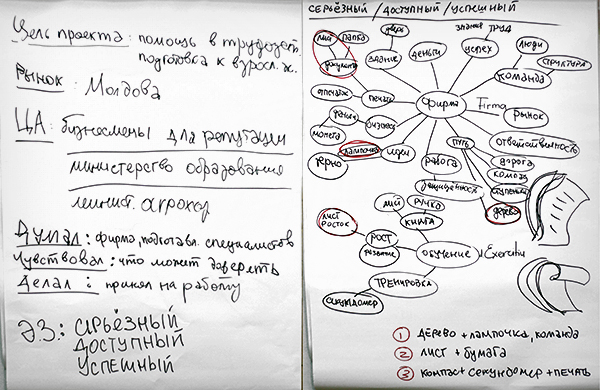 Цель проекта: помощь в трудоуст.
подготовка к взросл. ж.
Рынок: Молдова
ЦА: бизнесмены для репутации
министерство образования
минист. агрохоз
Думал: фирма, подготавл. специалистов
Чувствовал: что может доверять
Делал: принял на работу
Э.З.: СЕРЬЁЗНЫЙ
ДОСТУПНЫЙ
УСПЕШНЫЙ
СЕРЬЁЗНЫЙ / ДОСТУПНЫЙ / УСПЕШНЫЙ
дверь
знания ТРУД
лист папка
документ
здание
деньги
успех
люди
структура
команда
отпечаток
печать
фирма
Firma
рынок
деньги
монета
бизнес
ответственность
лампочка
идеи
путь
дорога
дерево
работа
компас
ступеньки
защищённость
дерево
лист
ручка
книга
лист
росток
РОСТ
развитие
обучение
Exerciții
ТРЕНИРОВКА
секундомер
1 ДЕРЕВО + лампочка, команда
2 лист + бумага
3 компас + секундомер + печать